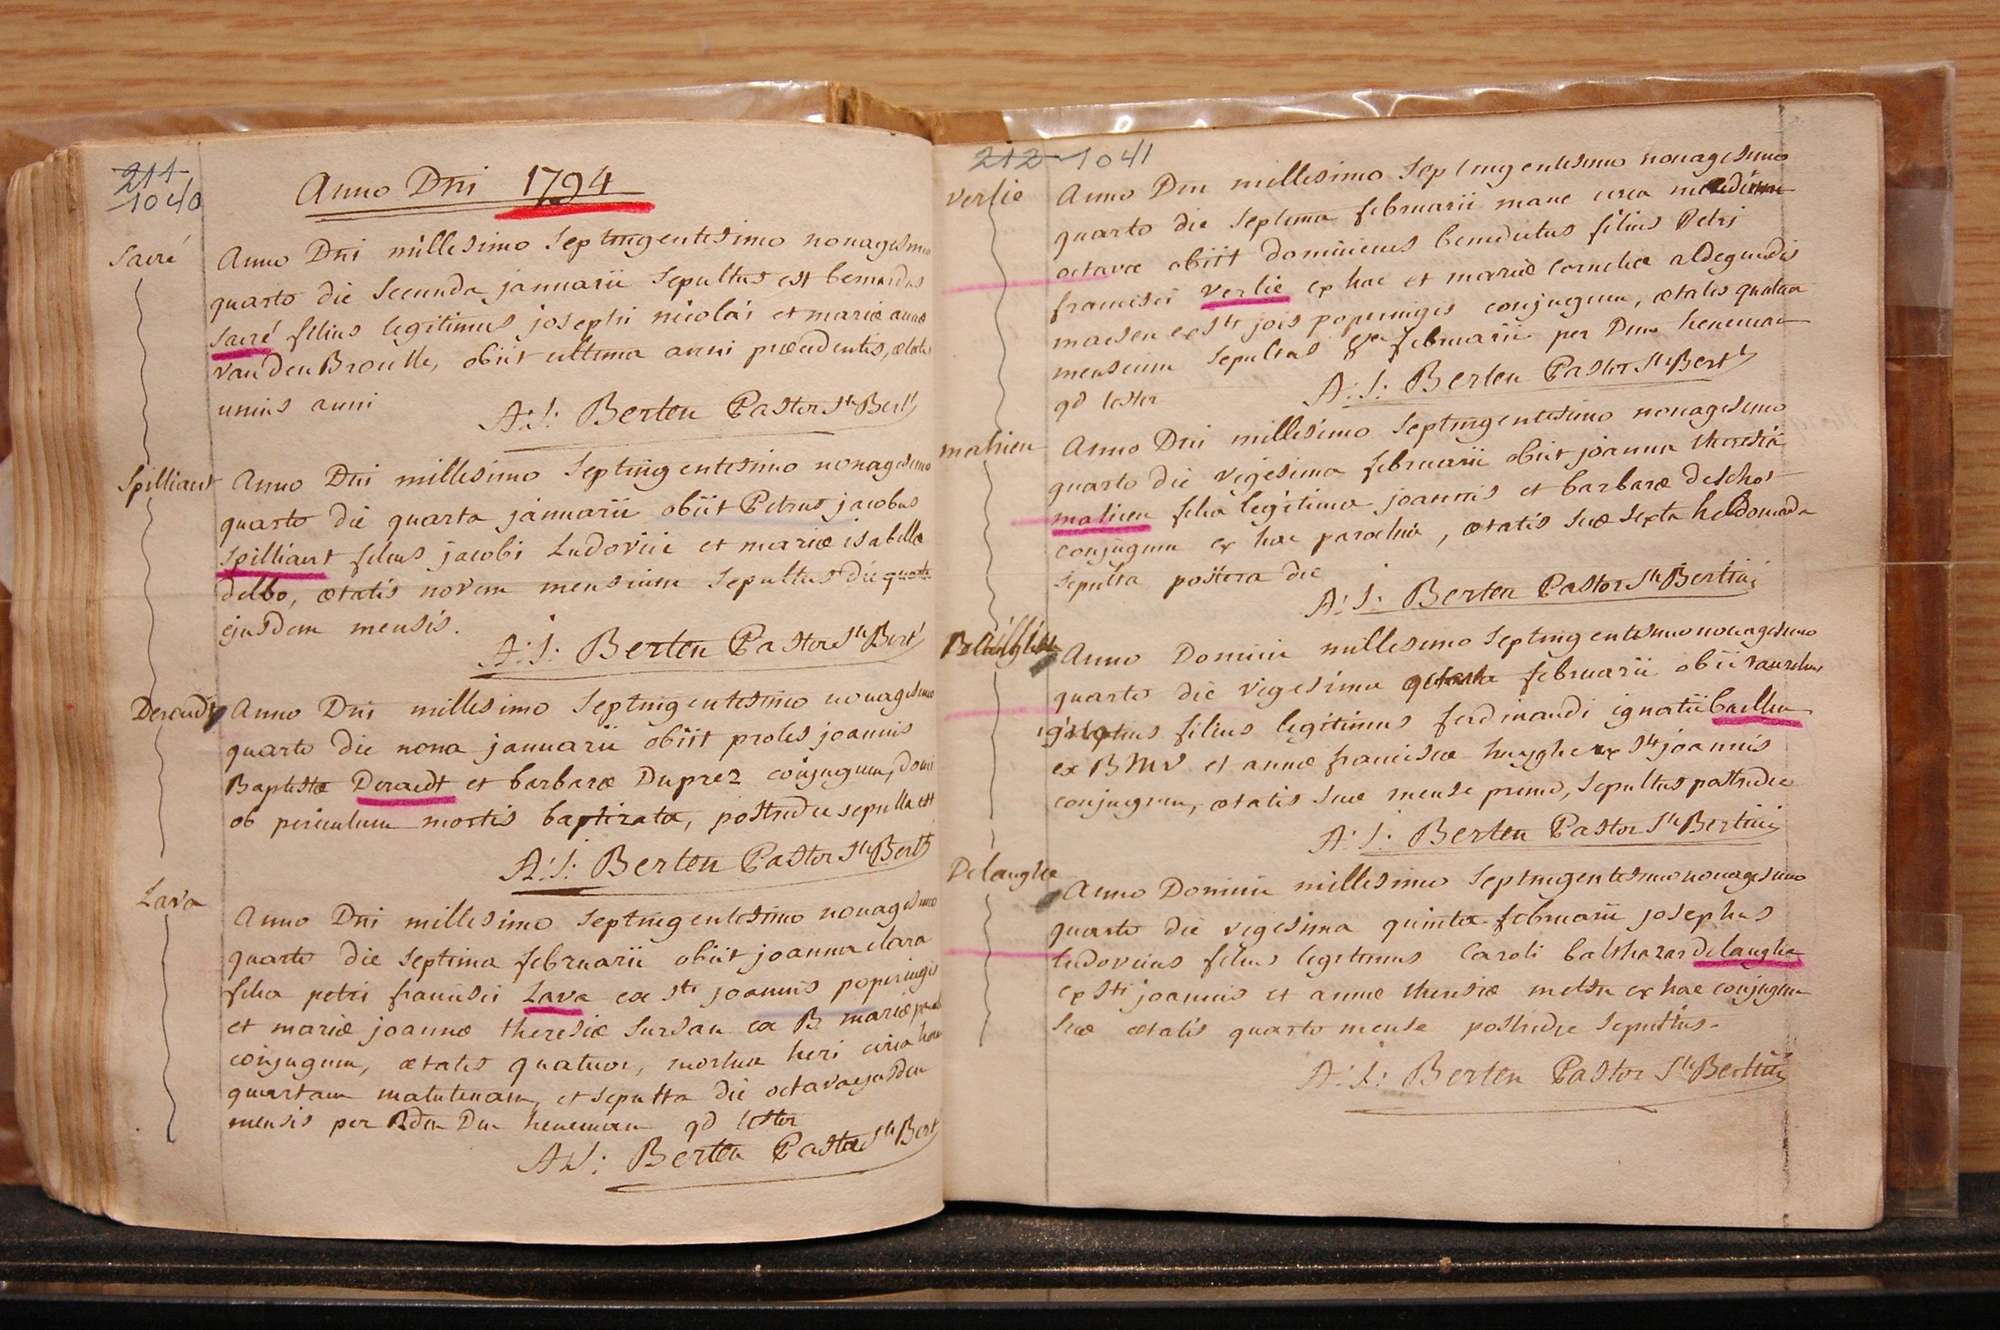 211
1040
Anno Dni 1794
Sacré
Anno Dni millesimo Septingentesimo nonagesimo
quarto die Secunda januarii Sepultus est bernardus
Sacré filius legitimus josephi nicolai et mariæ annæ
vanden Broucke, obiit ultima anni præcedentis, ætatis
unius anni
A: J: Berten Pastor Sti Berti
Spilliaert
Anno Dni millesimo Septingentesimo nonagesimo
quarto die quarta januarii obiit Petrus jacobus
Spilliaert filius jacobi Ludovici et mariæ isabellæ
delbo, ætatis novem mensium Sepultus die quarta
ejusdem mensis.
A: J: Berten Pastor Sti Berti
Deraedt
Anno Dni millesimo Septingentesimo nonagesimo
quarto die nona januarii obiit proles joannis
Baptistæ Deraedt et barbaræ Duprez conjugum, domi
ob periculum mortis baptizata, postridie sepulta est
A: J: Berten Pastor Sti Berti
Lava
Anno Dni millesimo Septingentesimo nonagesimo
quarto die Septima februarii obiit joanna clara
filia petri francisci Lava ex Sti joannis poperingis
et mariæ joannæ theresiæ Sursan ex B mariæ
conjugum, ætatis quatuor, mortua heri circa horam
quartam matutinam, et sepulta die octava ejusdem
mensis per Rdm Dm heneman qd testor
A: J: Berten Pastor Sti Bert
212 1041
Verlie
Anno Dni millesimo Septingentesimo nonagesimo
quarto die Septima februarii mane circa mediam
octavæ obiit dominicus benedictus filius Petri
francisci Verlie ex hac et mariæ corneliæ aldegundis
maesen ex Sti jois poperingis conjugum, ætatis quatuor
mensium Sepultus 8va februarii per Dm heneman
qd testor
A: J: Berten Pastor Sti Berti
mahieu
Anno Dni millesimo Septingentesimo nonagesimo
quarto die vigesima februarii obiit joanna theresia
mahieu filia legitima joannis et barbaræ
conjugum ex hac parochia, ætatis suæ sexta hebdomada
Sepulta postera die
A: J: Berten Pastor Sti Bertini
Anno Domini millesimo Septingentesimo nonagesimo
quarto die vigesima februarii obiit
ignatius filius legitimus ferdinandi ignatii baellieu
ex BMV et annæ franciscæ huyghe ex Sti joannis
conjugum, ætatis suæ mense primo, Sepultus postridie
A: J: Berten Pastor Sti Bertini
Delanghe
Anno Domini millesimo Septingentesimo nonagesimo
quarto die vigesima quinta februarii josephus
ludovicus filius legitimus Caroli balthazar delanghe
ex Sti joannis et annæ theresiæ metsu ex hac conjugum
suæ ætatis quarto mense postridie Sepultus.
A: J: Berten Pastor Sti Bertini